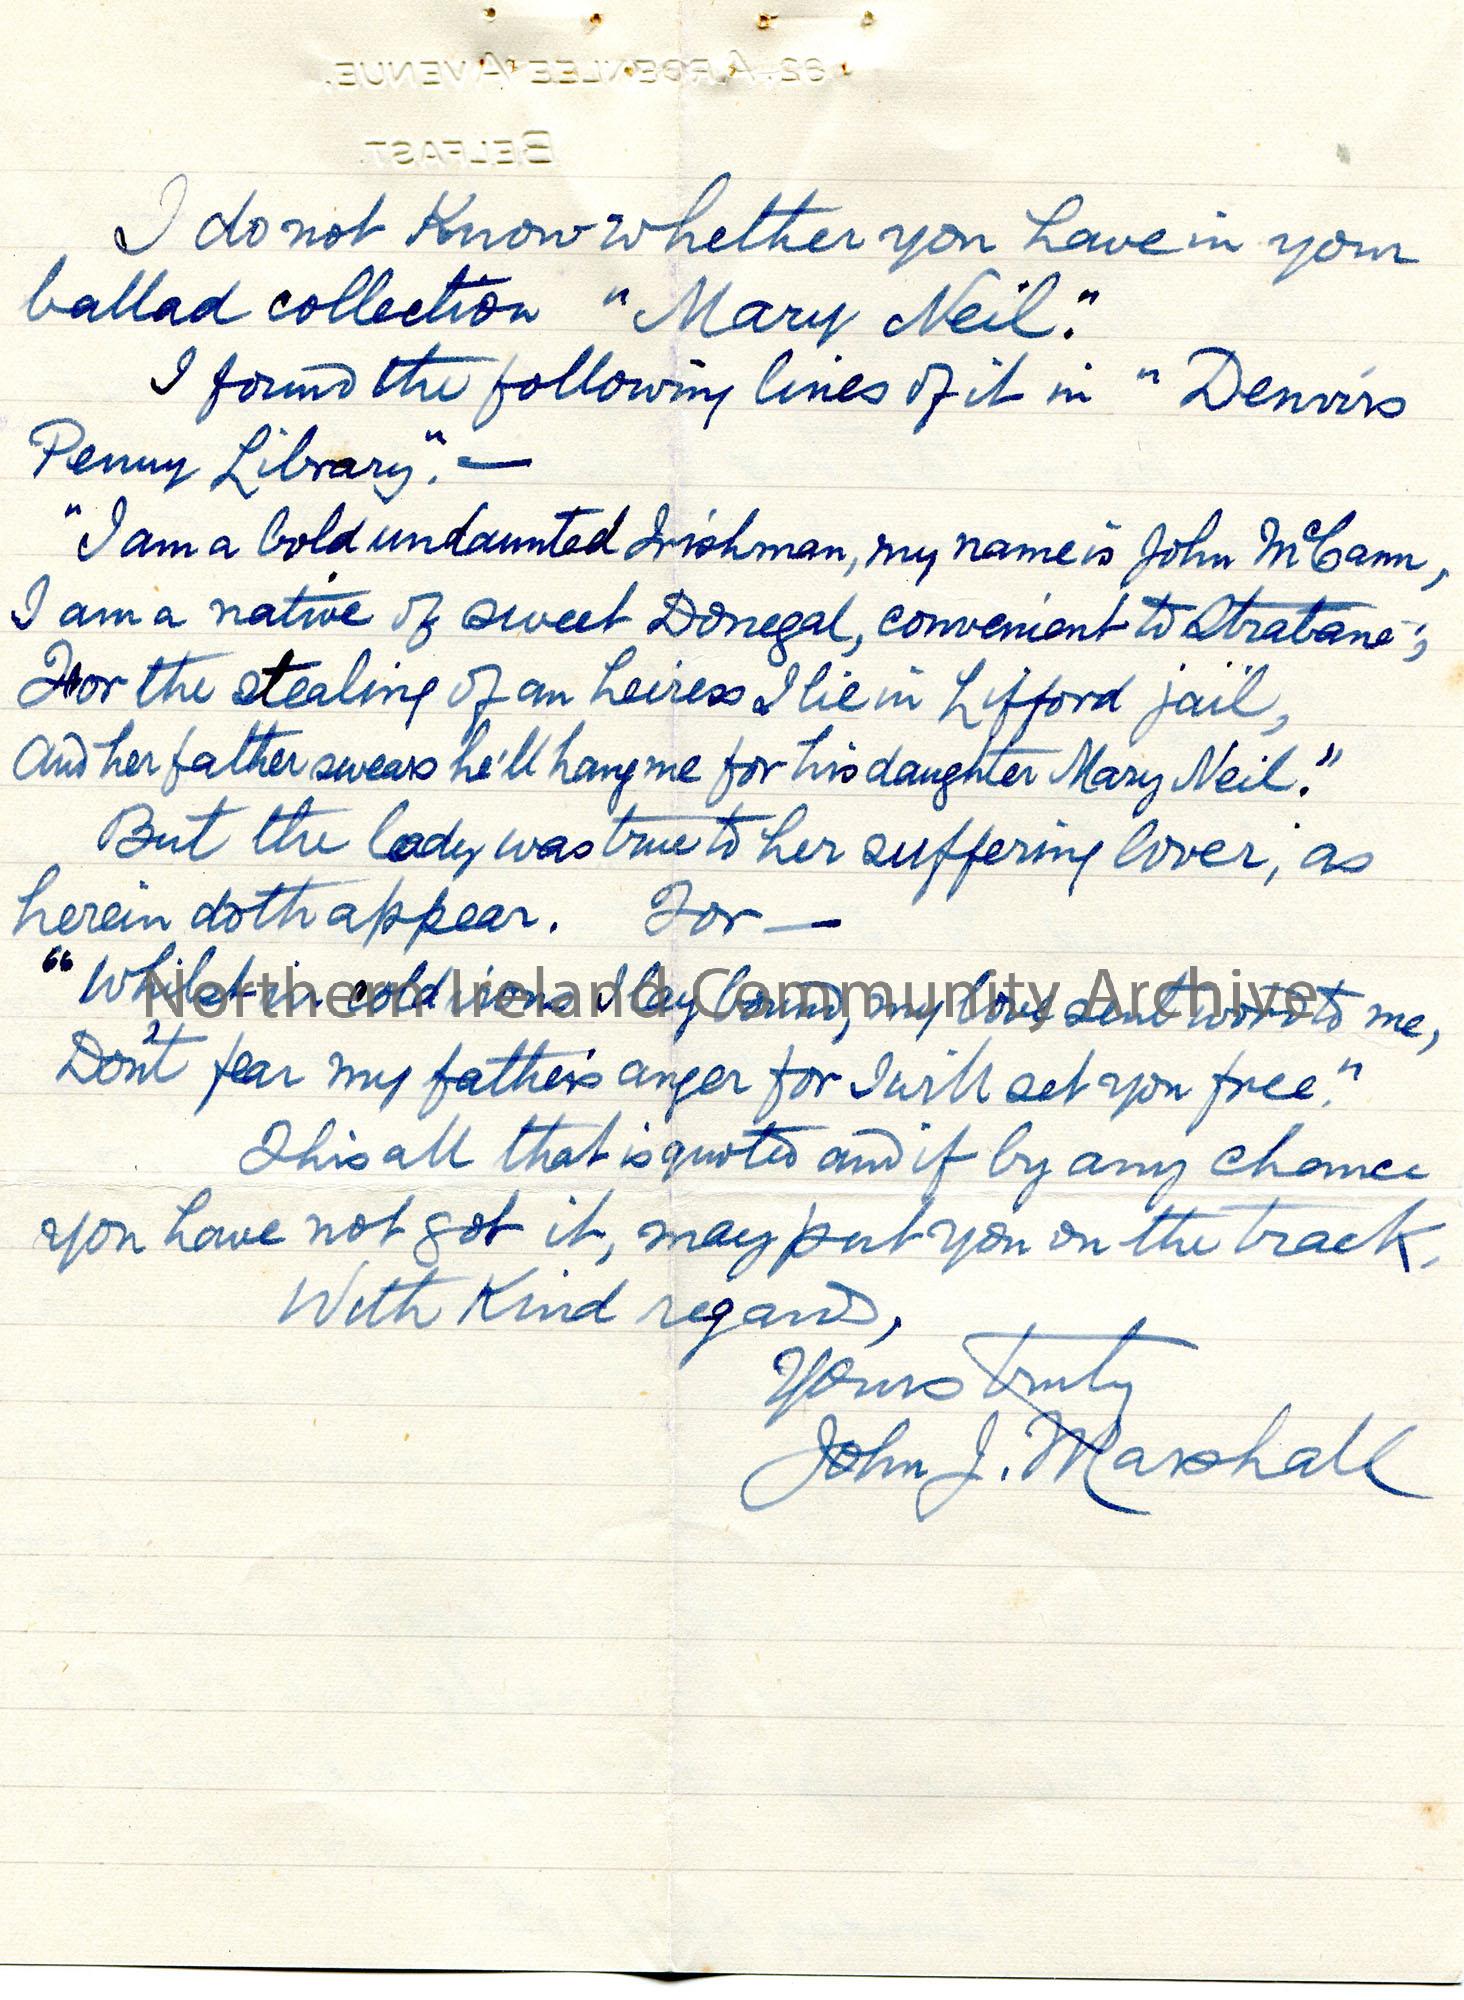 62, ARDENLEE AVENUE.
BELFAST.
I do not Know whether you have in your
ballad collection "Mary Neil."
I found the following lines of it in "Denvirs
Penny Library". —
"I am a bold undaunted Irishman, my name is John McCann,
I am a native of sweet Donegal, convenient to Strabane;
For the stealing of an heiress I lie in Lifford jail,
And her father swears he'll hang me for his daughter Mary Neil."
But the lady was true to her suffering lover, as
herein doth appear. For —
"Whilst in cold irons I lay bound, my love sent word to me,
Don't fear my father's anger for I will set you free."
This all that is quoted and if by any chance
you have not got it, may put you on the track.
With Kind regards,
Yours truly
John J. Marshall
Northern Ireland Community Archive